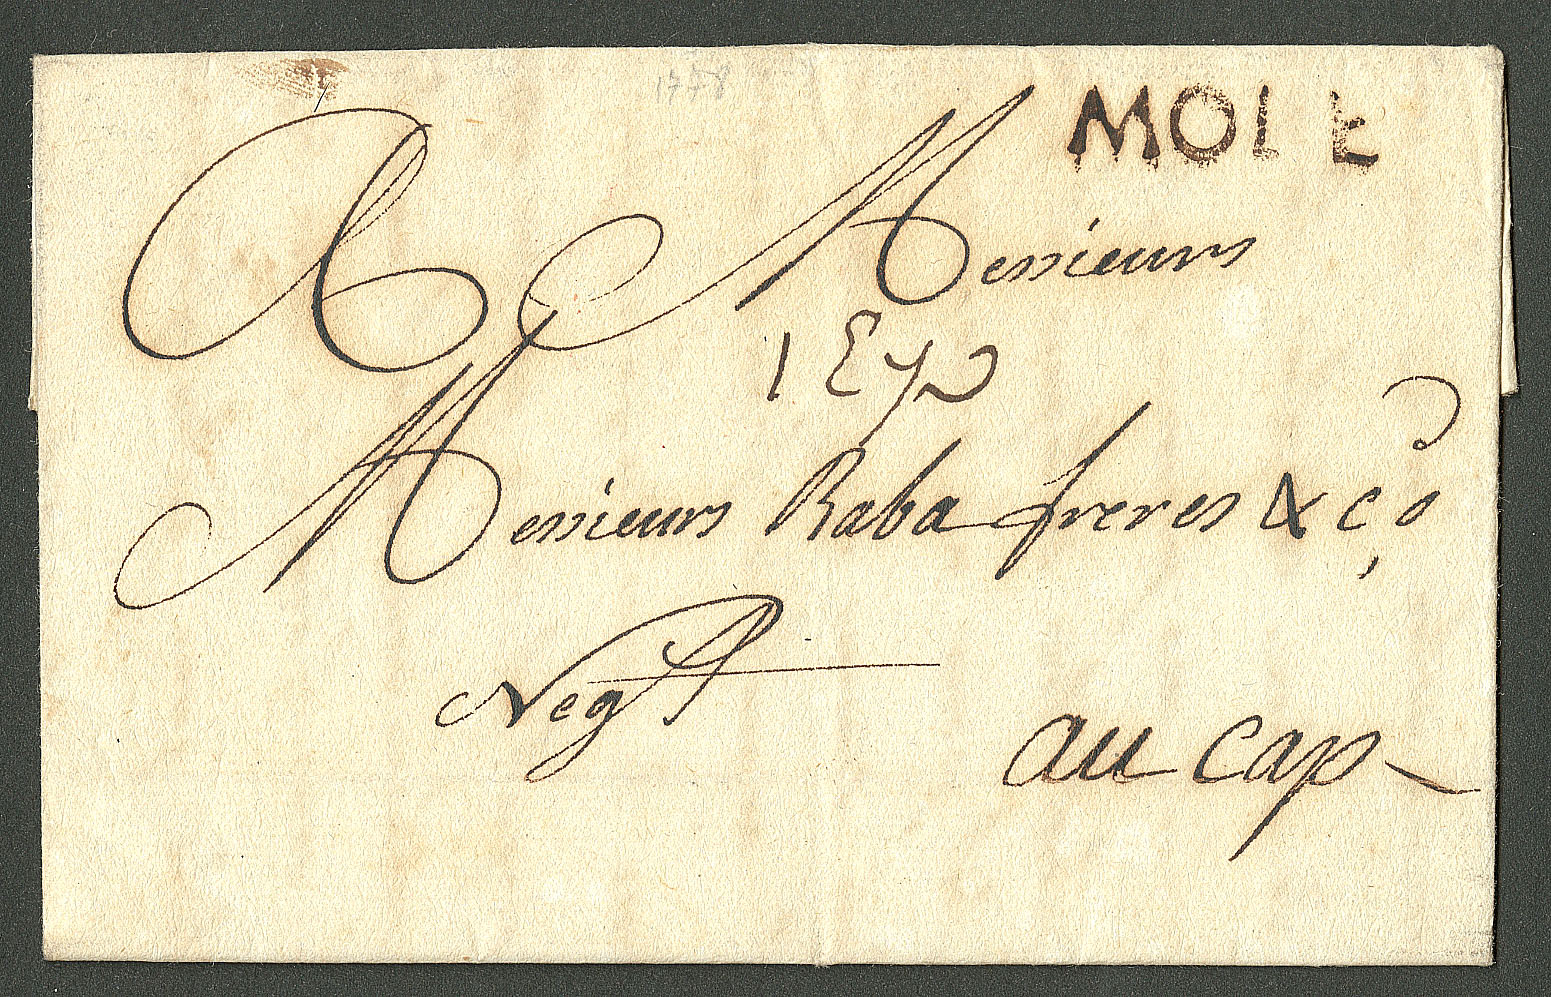 1778
MOLE
A Messieurs
Messieurs Raba freres & Co
Negt
au cap